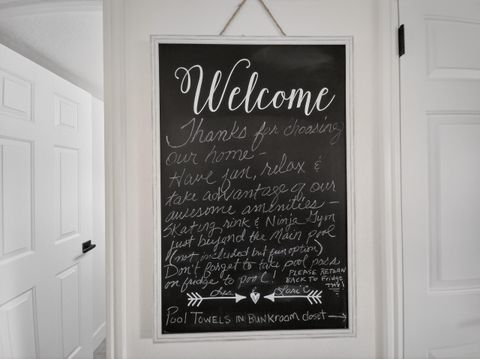 Welcome
Thanks for choosing
our home -
Have fun, relax &
take advantage of our
awesome amenities -
Skating rink & Ninja Gym
just beyond the Main pool
(not included but fun option)
Don't forget to take pool pass
on fridge to pool! PLEASE RETURN
BACK TO FRIDGE
THX!
Les Lori
POOL TOWELS IN BUNKROOM closet →